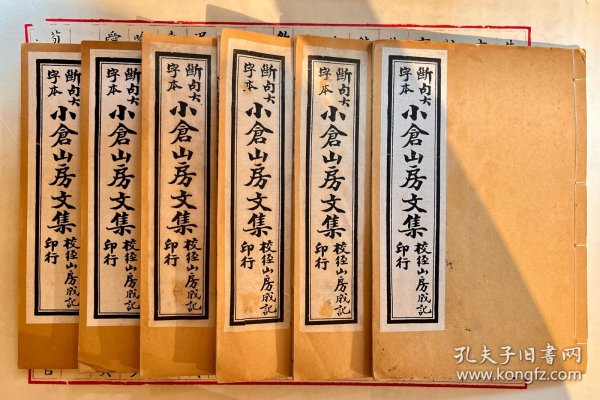 斷句大
字本
小倉山房文集
校経山房成記
印行
斷句大
字本
小倉山房文集
校経山房成記
印行
斷句大
字本
小倉山房文集
校経山房成記
印行
斷句大
字本
小倉山房文集
校経山房成記
印行
斷句大
字本
小倉山房文集
校経山房成記
印行
斷句大
字本
小倉山房文集
校経山房成記
印行
孔夫子旧书网
www.kongfz.com